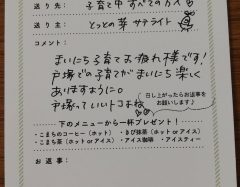 送り先： 子育て中 すべての方へ
送り主： とっとの芽 サテライト
コメント：
まいにち子育てお疲れ様です！
戸塚での子育てがまいにち楽しく
ありますように。
戸塚っていいトコよね
召し上がったらお返事を
お願いします♪
下のメニューから一杯プレゼント！
・こまちのコーヒー（ホット） ・きび抹茶（ホット or アイス）
・こまち茶（ホット or アイス） ・アイス珈琲 ・アイスティー
お返事：